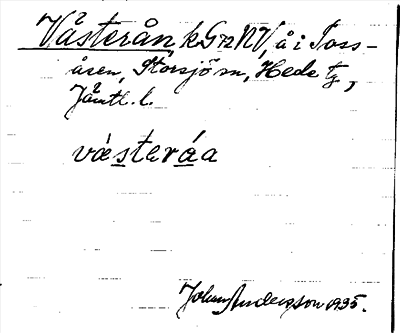 Våsterån, k G72 NV, å i Toss-
åsen, Storsjö sn, Hede tg,
Jämtl. l.
västeráa
Johan Anderson 1935.